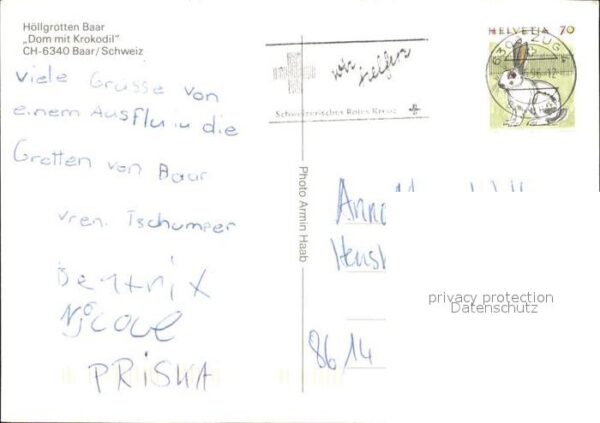 Höllgrotten Baar
„Dom mit Krokodil"
CH-6340 Baar/Schweiz
Viele Grüsse von
einem Ausflu in die
Grotten von Baar
Vren. Tschumper
Beatrix
Nicole
PRISKA
Photo Armin Haab
wir helfen
Schweizerisches Rotes Kreuz
HELVETIA 70
6300 ZUG
Anne
8614
privacy protection
Datenschutz